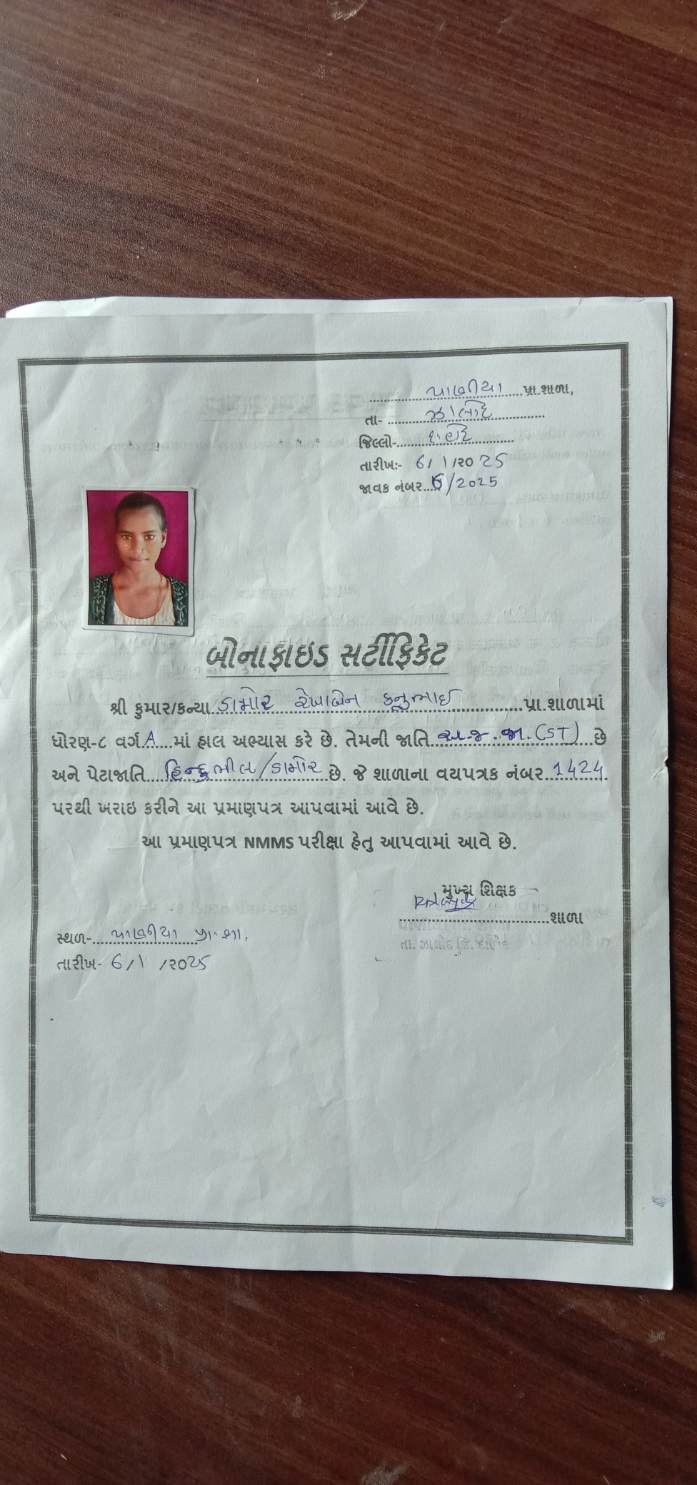 પાણીયા પ્રા.શાળા,
તા- ઝાલોદ
જિલ્લો- દાહોદ
તારીખ:- 6/1/2025
જાવક નંબર...5/2025
બોનાફાઇડ સર્ટીફિકેટ
શ્રી કુમાર/કન્યા ડામોર કનુભાઇ પ્રા.શાળામાં
ધોરણ-૮ વર્ગ A માં હાલ અભ્યાસ કરે છે. તેમની જાતિ અ.જ.જા.(ST) છે
અને પેટાજાતિ હિન્દુ ભીલ/ડામોર છે. જે શાળાના વયપત્રક નંબર 1424.
પરથી ખરાઇ કરીને આ પ્રમાણપત્ર આપવામાં આવે છે.
આ પ્રમાણપત્ર NMMS પરીક્ષા હેતુ આપવામાં આવે છે.
મુખ્ય શિક્ષક
શાળા
સ્થળ- પાણીયા પ્રા.શા.
તારીખ- 6/1/2025